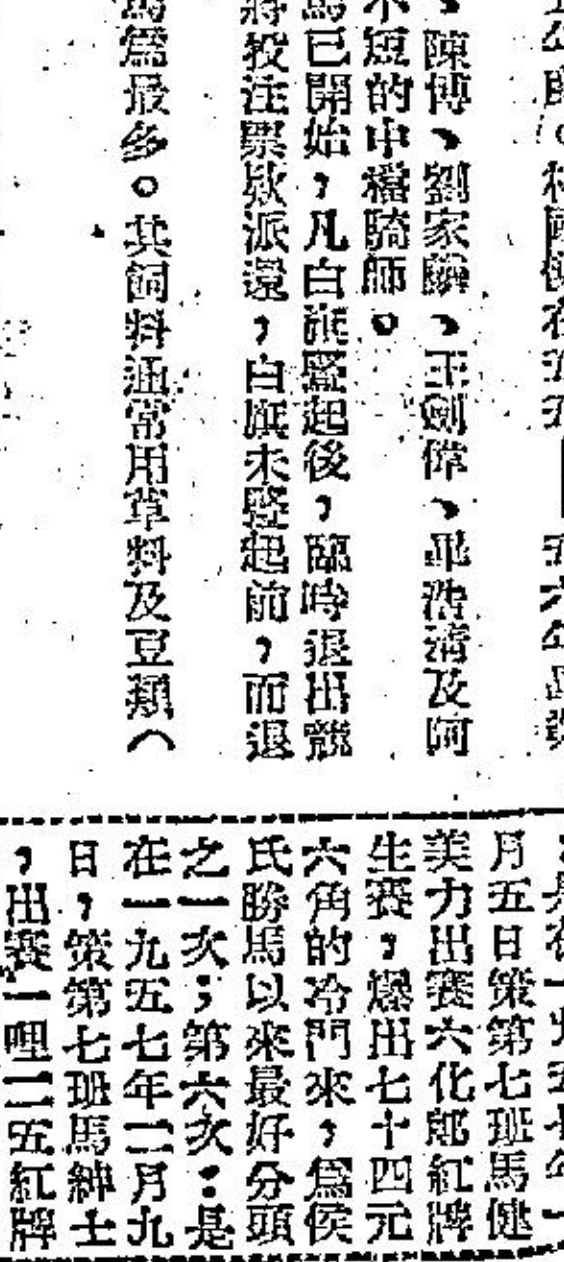 、陳博、劉家麟、王劍偉、巫浩淸及阿
不短的中檔騎師。
馬已開始，凡白旗竪起後，臨時退出競
將投注票欵派還，白旗未竪起前，而退
馬爲最多。其飼料通常用草料及豆類（
月五日策第七班馬健
美力出賽六化郎紅牌
生賽，爆出七十四元
六角的冷門來，爲侯
氏勝馬以來最好分頭
之一次；第六次：是
在一九五七年二月九
日，策第七班馬紳士
，出賽一哩二五紅牌